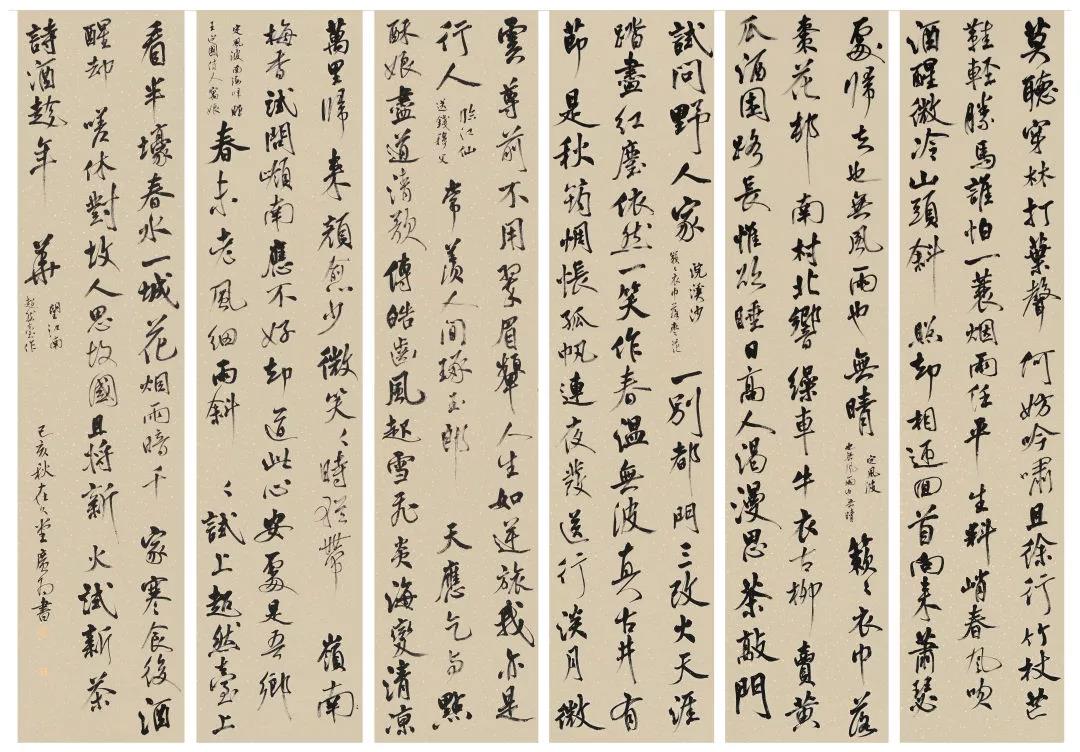 莫聽穿林打葉聲 何妨吟嘯且徐行竹杖芒
鞋輕勝馬誰怕一蓑烟雨任平 生料峭春風吹
酒醒微冷山頭斜 照却相迎回首向来蕭瑟
處歸去也無風雨也 無晴 定風波 也無風雨也無晴 簌々衣巾落
棗花邨 南村北響繰車牛衣古柳 賣黄
瓜酒困路長惟欲睡日高人渴漫思茶敲門
試問野人家 浣溪沙 簌々衣巾落棗花 一別都門三改火天涯
踏盡红塵依然一笑作春温無波真古井有
節是秋筠惆悵孤帆連夜發送行淡月微
雲尊前不用翠眉顰人生如逆旅我亦是
行人 臨江仙 送錢穆父 常羨人間琢玉郎 天應乞與點
酥娘盡道清歌傳皓齒風起雪飛炎海變清涼
萬里歸 来顔愈少微笑々時猶帶 嶺南
梅香試問嶺南應不好却道此心安處是吾鄉
定風波南海歸贈王定國侍人寓娘 春未老風細雨斜 々試上超然臺上
看半壕春水一城花烟雨暗千 家寒食後酒
醒却 嗟休對故人思故國且將新 火試新茶
詩酒趁年 華 望江南 超然臺作 己亥秋在久堂 書